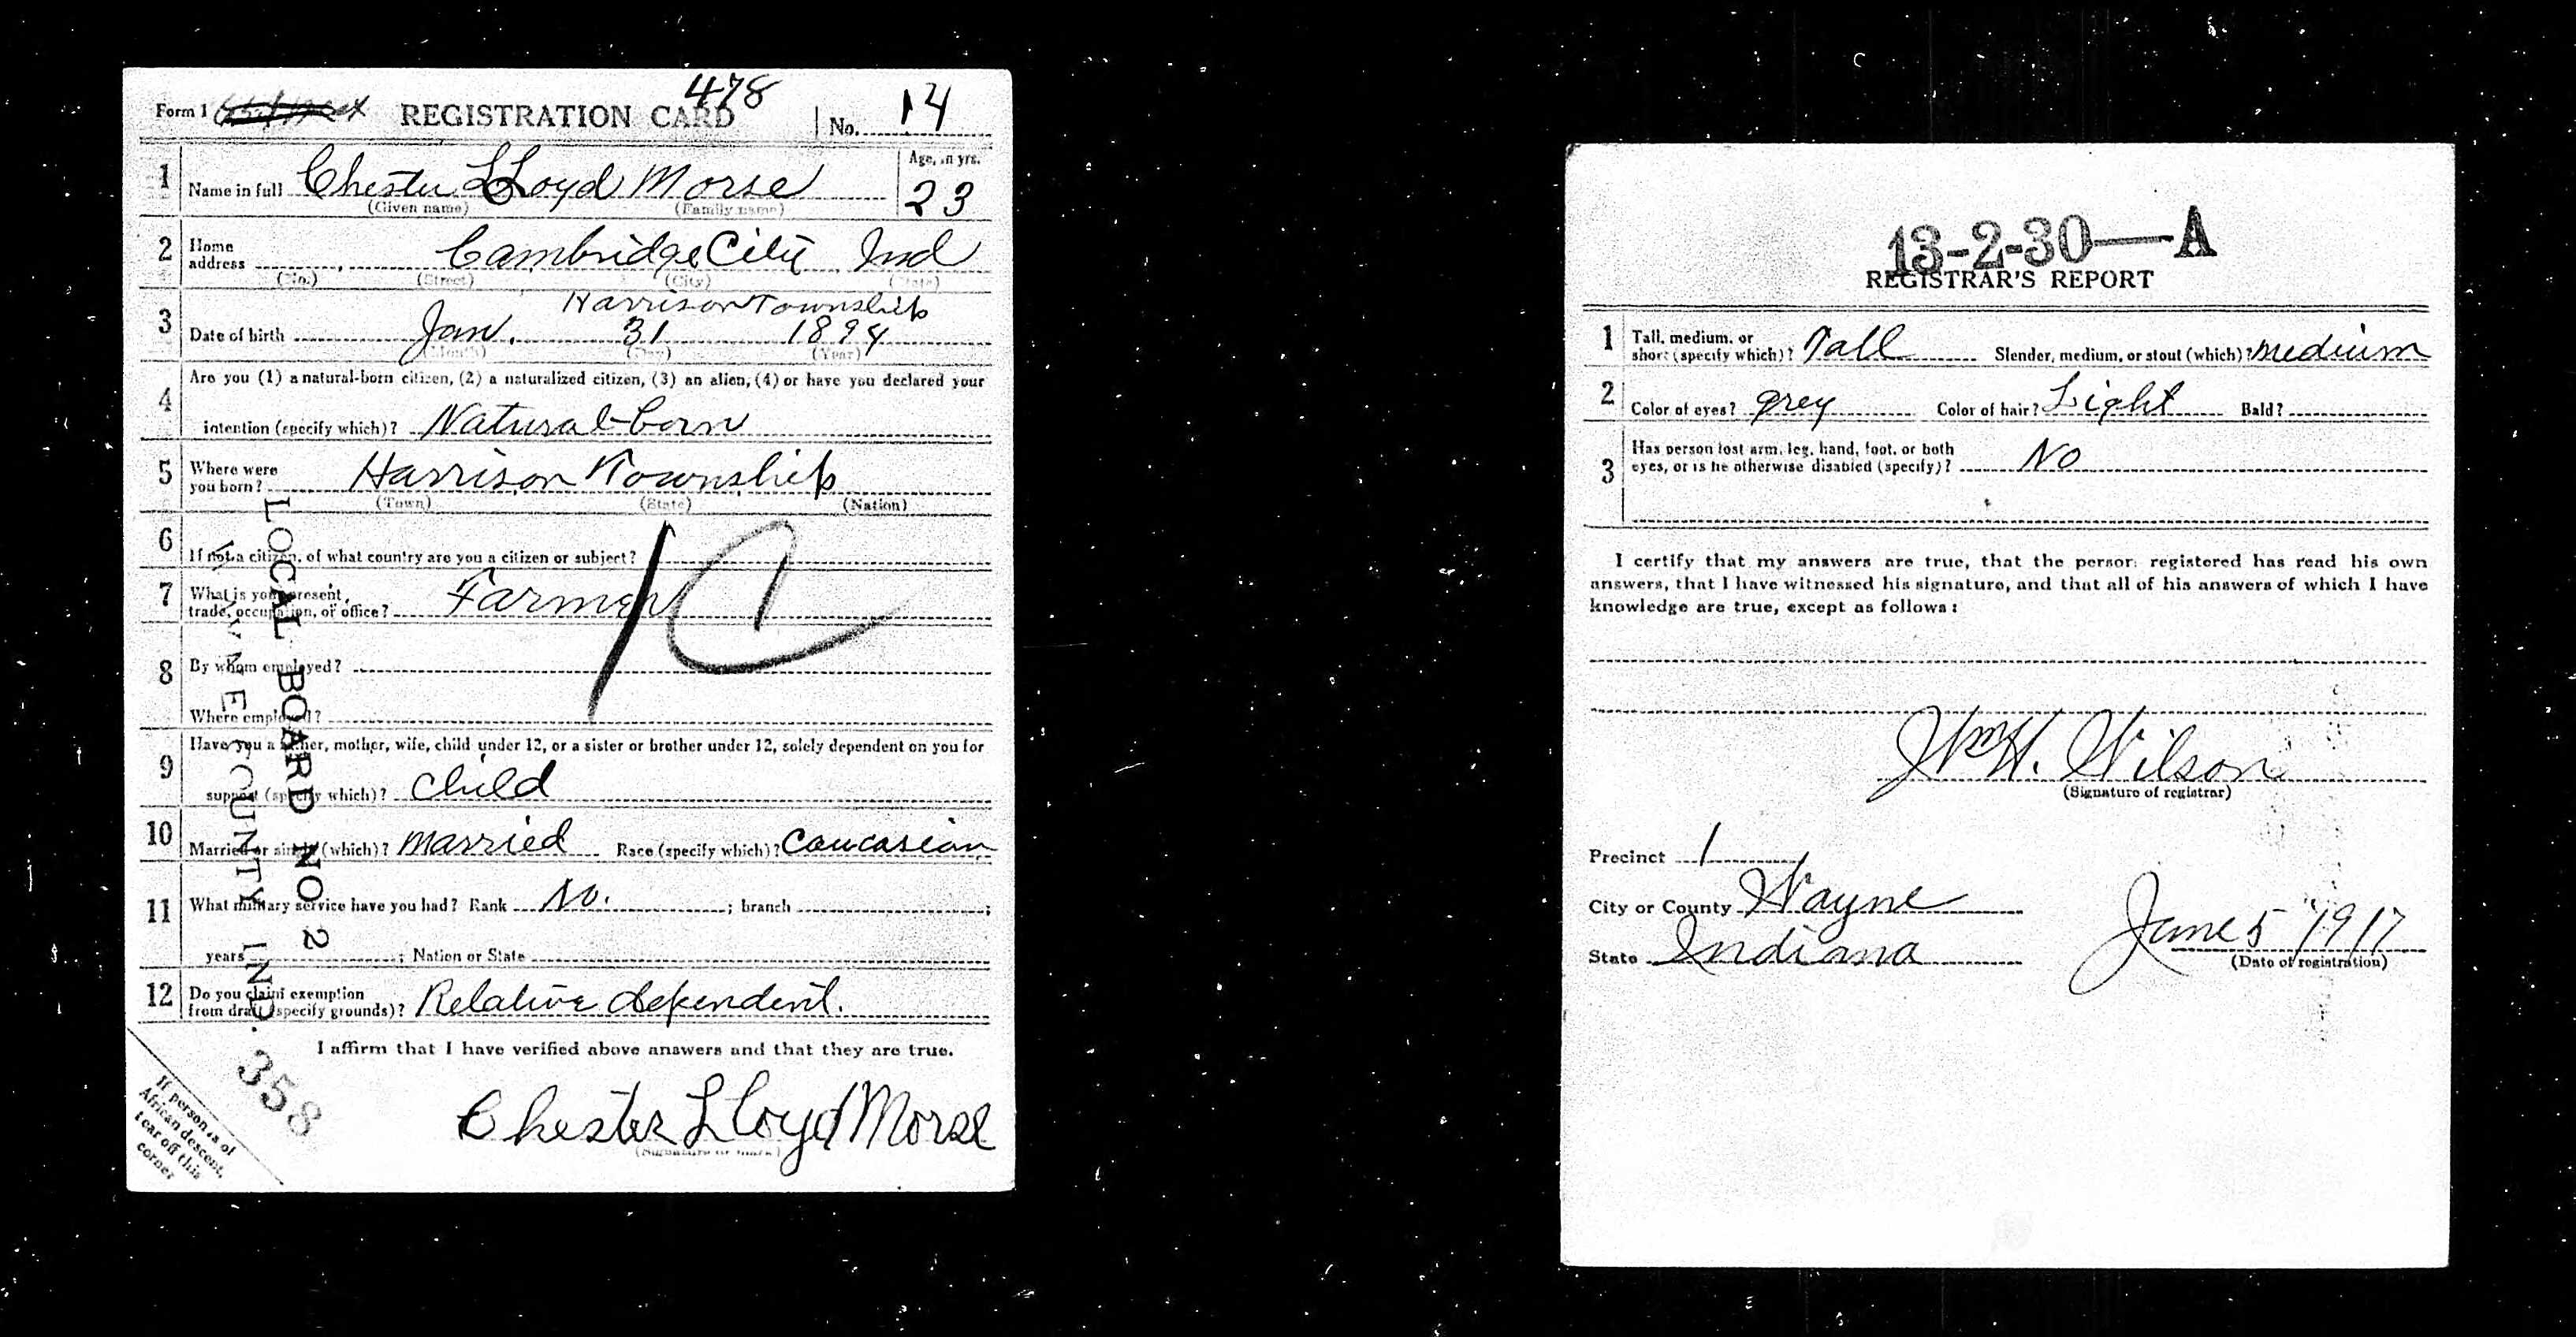 478
Form 1 REGISTRATION CARD No. 14
1 Name in full Chester LLoyd Morse Age, in yrs. 23
(Given name) (Family name)
2 Home address Cambridge City Ind
(No.) (Street) (City) (State)
Harrison Township
3 Date of birth Jan. 31 1894
(Month) (Day) (Year)
4 Are you (1) a natural-born citizen, (2) a naturalized citizen, (3) an alien, (4) or have you declared your
intention (specify which)? Natural born
5 Where were you born? Harrison Township
(Town) (State) (Nation)
6 If not a citizen, of what country are you a citizen or subject?
7 What is your present trade, occupation, or office? Farmer
1C
8 By whom employed?
Where employed?
9 Have you a father, mother, wife, child under 12, or a sister or brother under 12, solely dependent on you for
support (specify which)? child
10 Married or single (which)? married Race (specify which)? Caucasian
11 What military service have you had? Rank No. ; branch ;
years ; Nation or State
12 Do you claim exemption from draft (specify grounds)? Relative dependent.
I affirm that I have verified above answers and that they are true.
Chester LLoyd Morse
(Signature or mark)
If person is of
African descent,
tear off this
corner
358
LOCAL BOARD NO 2
WAYNE COUNTY IND.
13-2-30—A
REGISTRAR'S REPORT
1 Tall, medium, or short (specify which)? Tall Slender, medium, or stout (which)? medium
2 Color of eyes? grey Color of hair? Light Bald?
3 Has person lost arm, leg, hand, foot, or both
eyes, or is he otherwise disabled (specify)? No
I certify that my answers are true, that the person registered has read his own
answers, that I have witnessed his signature, and that all of his answers of which I have
knowledge are true, except as follows:
Wm H. Wilson
(Signature of registrar)
Precinct 1
City or County Wayne
State Indiana June 5 1917
(Date of registration)